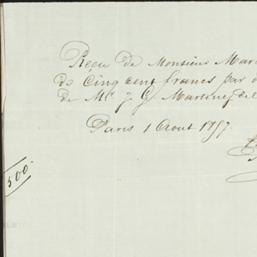 Reçu de Monsieur Mar
de Cinq cent francs par
de Mr. J G Martinez del
Paris 1 Aout 1857.
500.